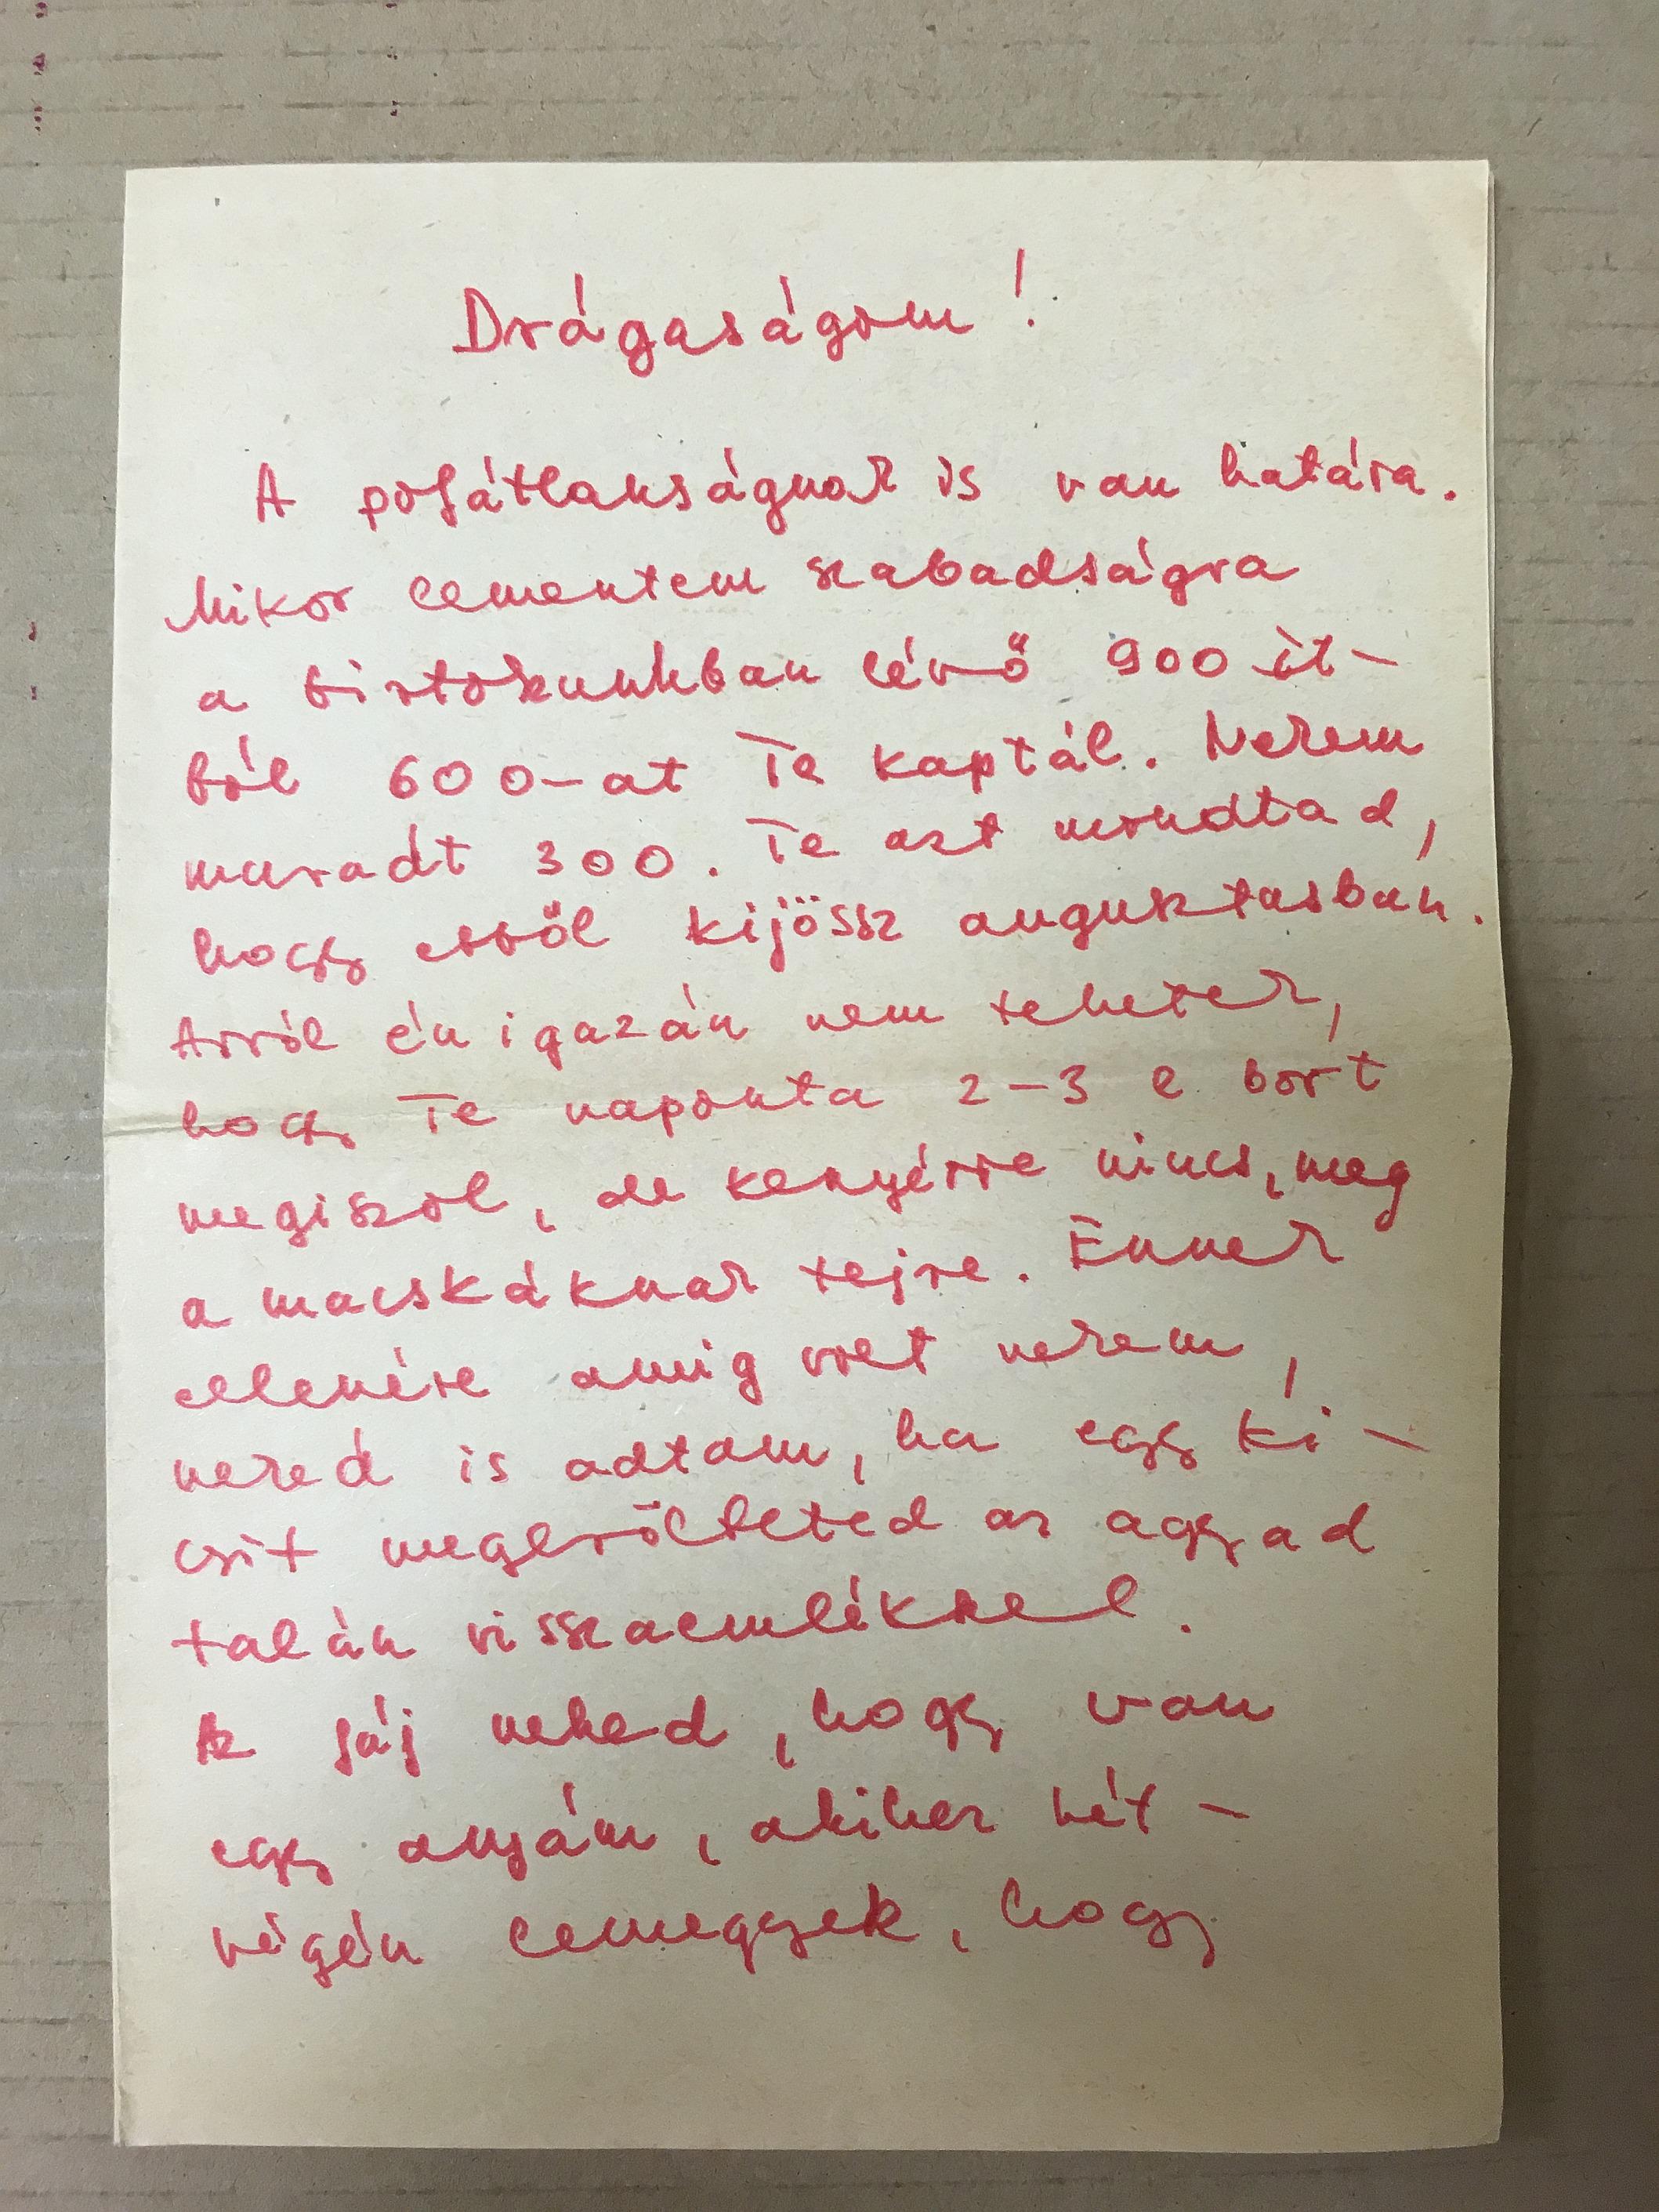 Drágaságom!
A pofátlanságnak is van határa.
Mikor lementem szabadságra
a birtokunkban lévő 900 Ft-
ból 600-at Te kaptál. Nekem
maradt 300. Te azt mondtad,
hogy ebből kijössz augusztusban.
Arról én igazán nem tehetek,
hogy Te naponta 2-3 l bort
megiszol, de kenyérre nincs, meg
a macskáknak tejre. Ennek
ellenére amig volt nekem,
neked is adtam, ha egy ki-
csit megerőlteted az agyad
talán visszaemlékszel.
Az fáj neked, hogy van
egy anyám, akihez hét-
végén lemegyek, hogy